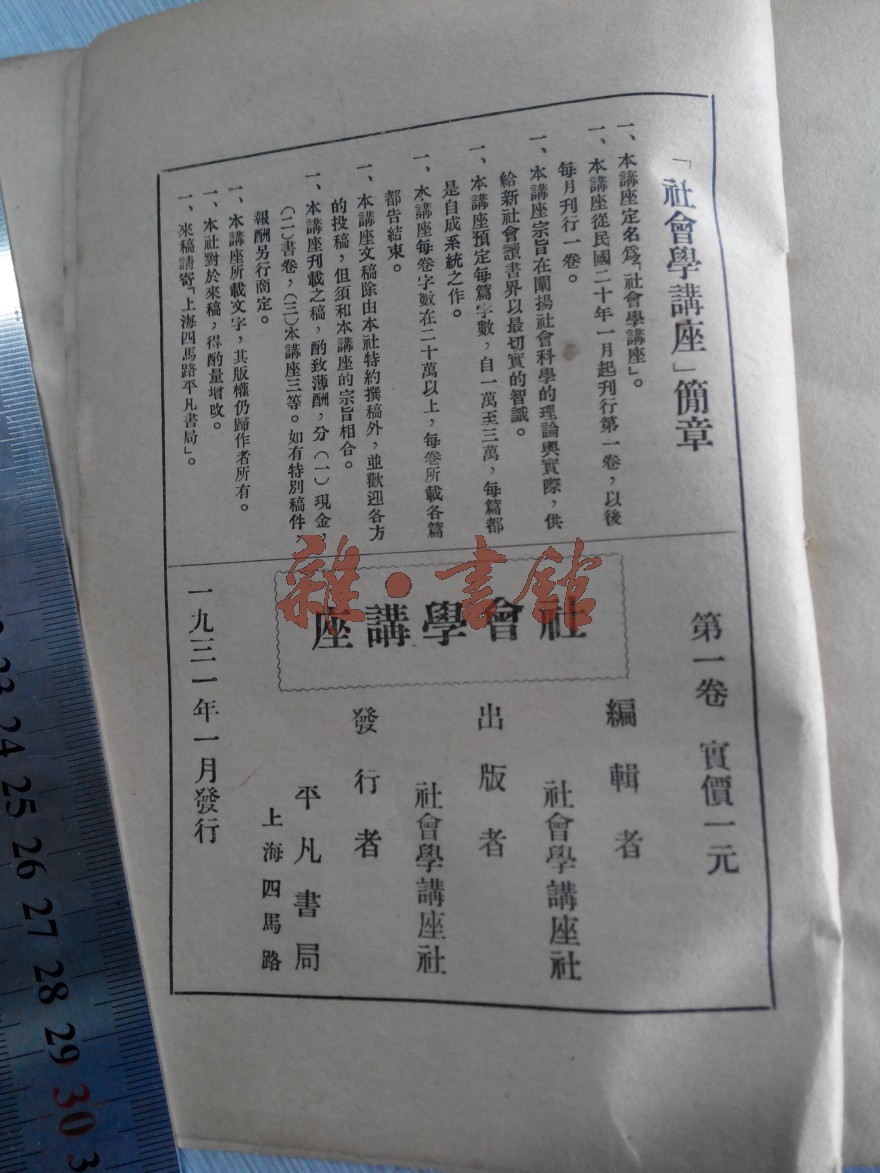 「社會學講座」簡章
一、本講座定名爲「社會學講座」。
一、本講座從民國二十年一月起刊行第一卷，以後
每月刊行一卷。
一、本講座宗旨在闡揚社會科學的理論與實際，供
給新社會讀書界以最切實的智識。
一、本講座預定每篇字數，自一萬至三萬，每篇都
是自成系統之作。
一、本講座每卷字數在二十萬以上，每卷所載各篇
都告結束。
一、本講座文稿除由本社特約撰稿外，並歡迎各方
的投稿，但須和本講座的宗旨相合。
一、本講座刊載之稿，酌致薄酬，分（一）現金，
（二）書卷，（三）本講座三等。如有特別稿件，
報酬另行商定。
一、本講座所載文字，其版權仍歸作者所有。
一、本社對於來稿，得酌量增改。
一、來稿請寄「上海四馬路平凡書局」。
第一卷 實價一元
社會學講座
編輯者 社會學講座社
出版者 社會學講座社
發行者 平凡書局
上海四馬路
一九三一年一月發行
雜·書館
23
24
25
26
27
28
29
30
3